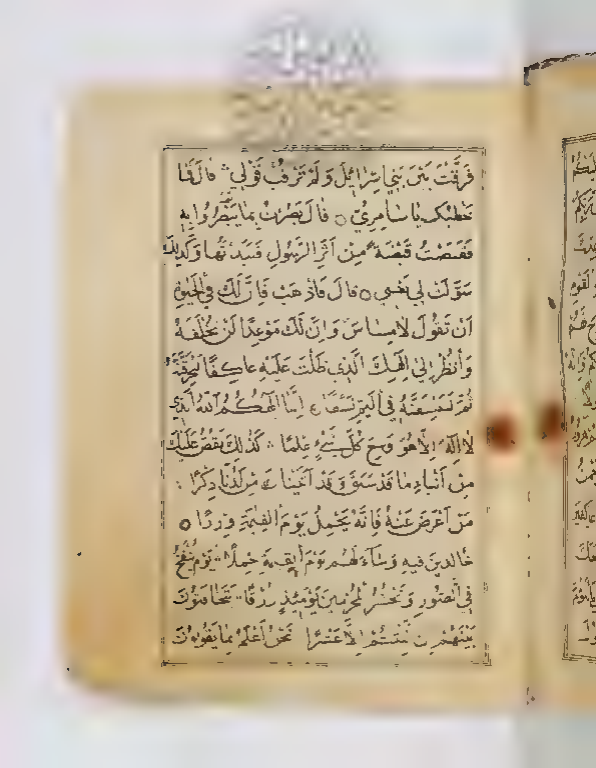 فَرَّقْتَ بَيْنَ بَنِي اِسْرَائِيلَ وَلَمْ تَرْقُبْ قَوْلِي قَالَ فَمَا
خَطْبُكَ يَا سَامِرِيُّ قَالَ بَصُرْتُ بِمَا لَمْ يَبْصُرُوا بِهِ
فَقَبَضْتُ قَبْضَةً مِنْ اَثَرِ الرَّسُولِ فَنَبَذْتُهَا وَكَذٰلِكَ
سَوَّلَتْ لِي نَفْسِي قَالَ فَاذْهَبْ فَاِنَّ لَكَ فِي الْحَيٰوةِ
اَنْ تَقُولَ لَا مِسَاسَ وَاِنَّ لَكَ مَوْعِدًا لَنْ تُخْلَفَهُ
وَانْظُرْ اِلٰى اِلٰهِكَ الَّذِي ظَلْتَ عَلَيْهِ عَاكِفًا لَنُحَرِّقَنَّهُ
ثُمَّ لَنَنْسِفَنَّهُ فِي الْيَمِّ نَسْفًا اِنَّمَا اِلٰهُكُمُ اللّٰهُ الَّذِي
لَا اِلٰهَ اِلَّا هُوَ وَسِعَ كُلَّ شَيْءٍ عِلْمًا كَذٰلِكَ نَقُصُّ عَلَيْكَ
مِنْ اَنْبَاءِ مَا قَدْ سَبَقَ وَقَدْ اٰتَيْنَاكَ مِنْ لَدُنَّا ذِكْرًا
مَنْ اَعْرَضَ عَنْهُ فَاِنَّهُ يَحْمِلُ يَوْمَ الْقِيٰمَةِ وِزْرًا
خَالِدِينَ فِيهِ وَسَاءَ لَهُمْ يَوْمَ الْقِيٰمَةِ حِمْلًا يَوْمَ يُنْفَخُ
فِي الصُّورِ وَنَحْشُرُ الْمُجْرِمِينَ يَوْمَئِذٍ زُرْقًا يَتَخَافَتُونَ
بَيْنَهُمْ اِنْ لَبِثْتُمْ اِلَّا عَشْرًا نَحْنُ اَعْلَمُ بِمَا يَقُولُونَ